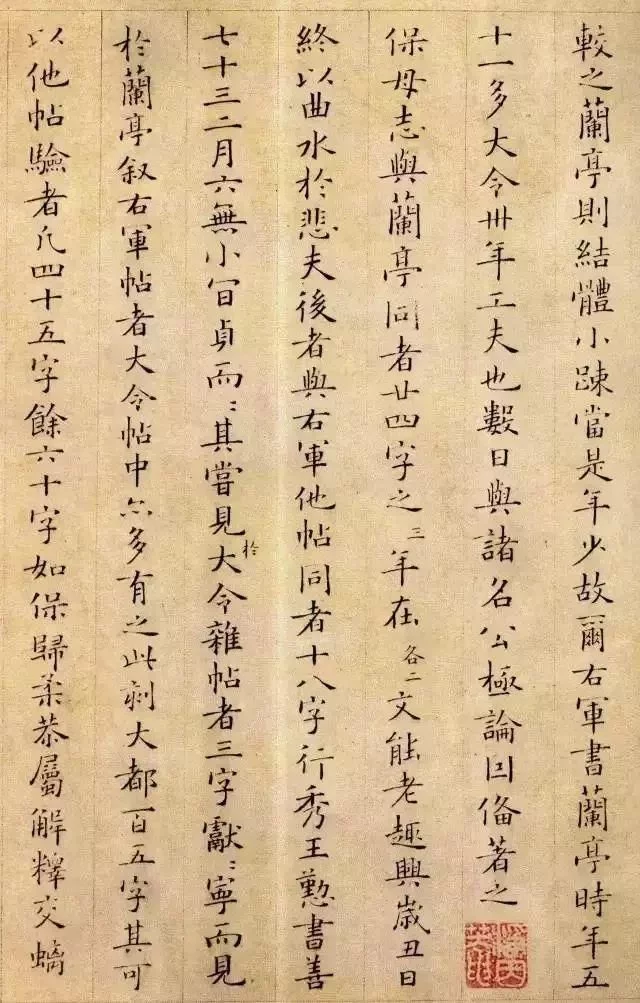 較之蘭亭則結體小疎當是年少故爾右軍書蘭亭時年五
十一多大令卅年工夫也數日與諸名公極論因備著之
保母志與蘭亭同者廿四字之三年在各二文能老趣興歲丑日
終以曲水於悲夫後者與右軍他帖同者十八字行秀王懃書善
七十三二月六無小可貞而〻其嘗見於大令雜帖者三字獻〻寧而見
於蘭亭叙右軍帖者大令帖中亦多有之此刻大都一百五字其可
以他帖驗者凡四十五字餘六十字如保歸柔恭屬解釋交螭